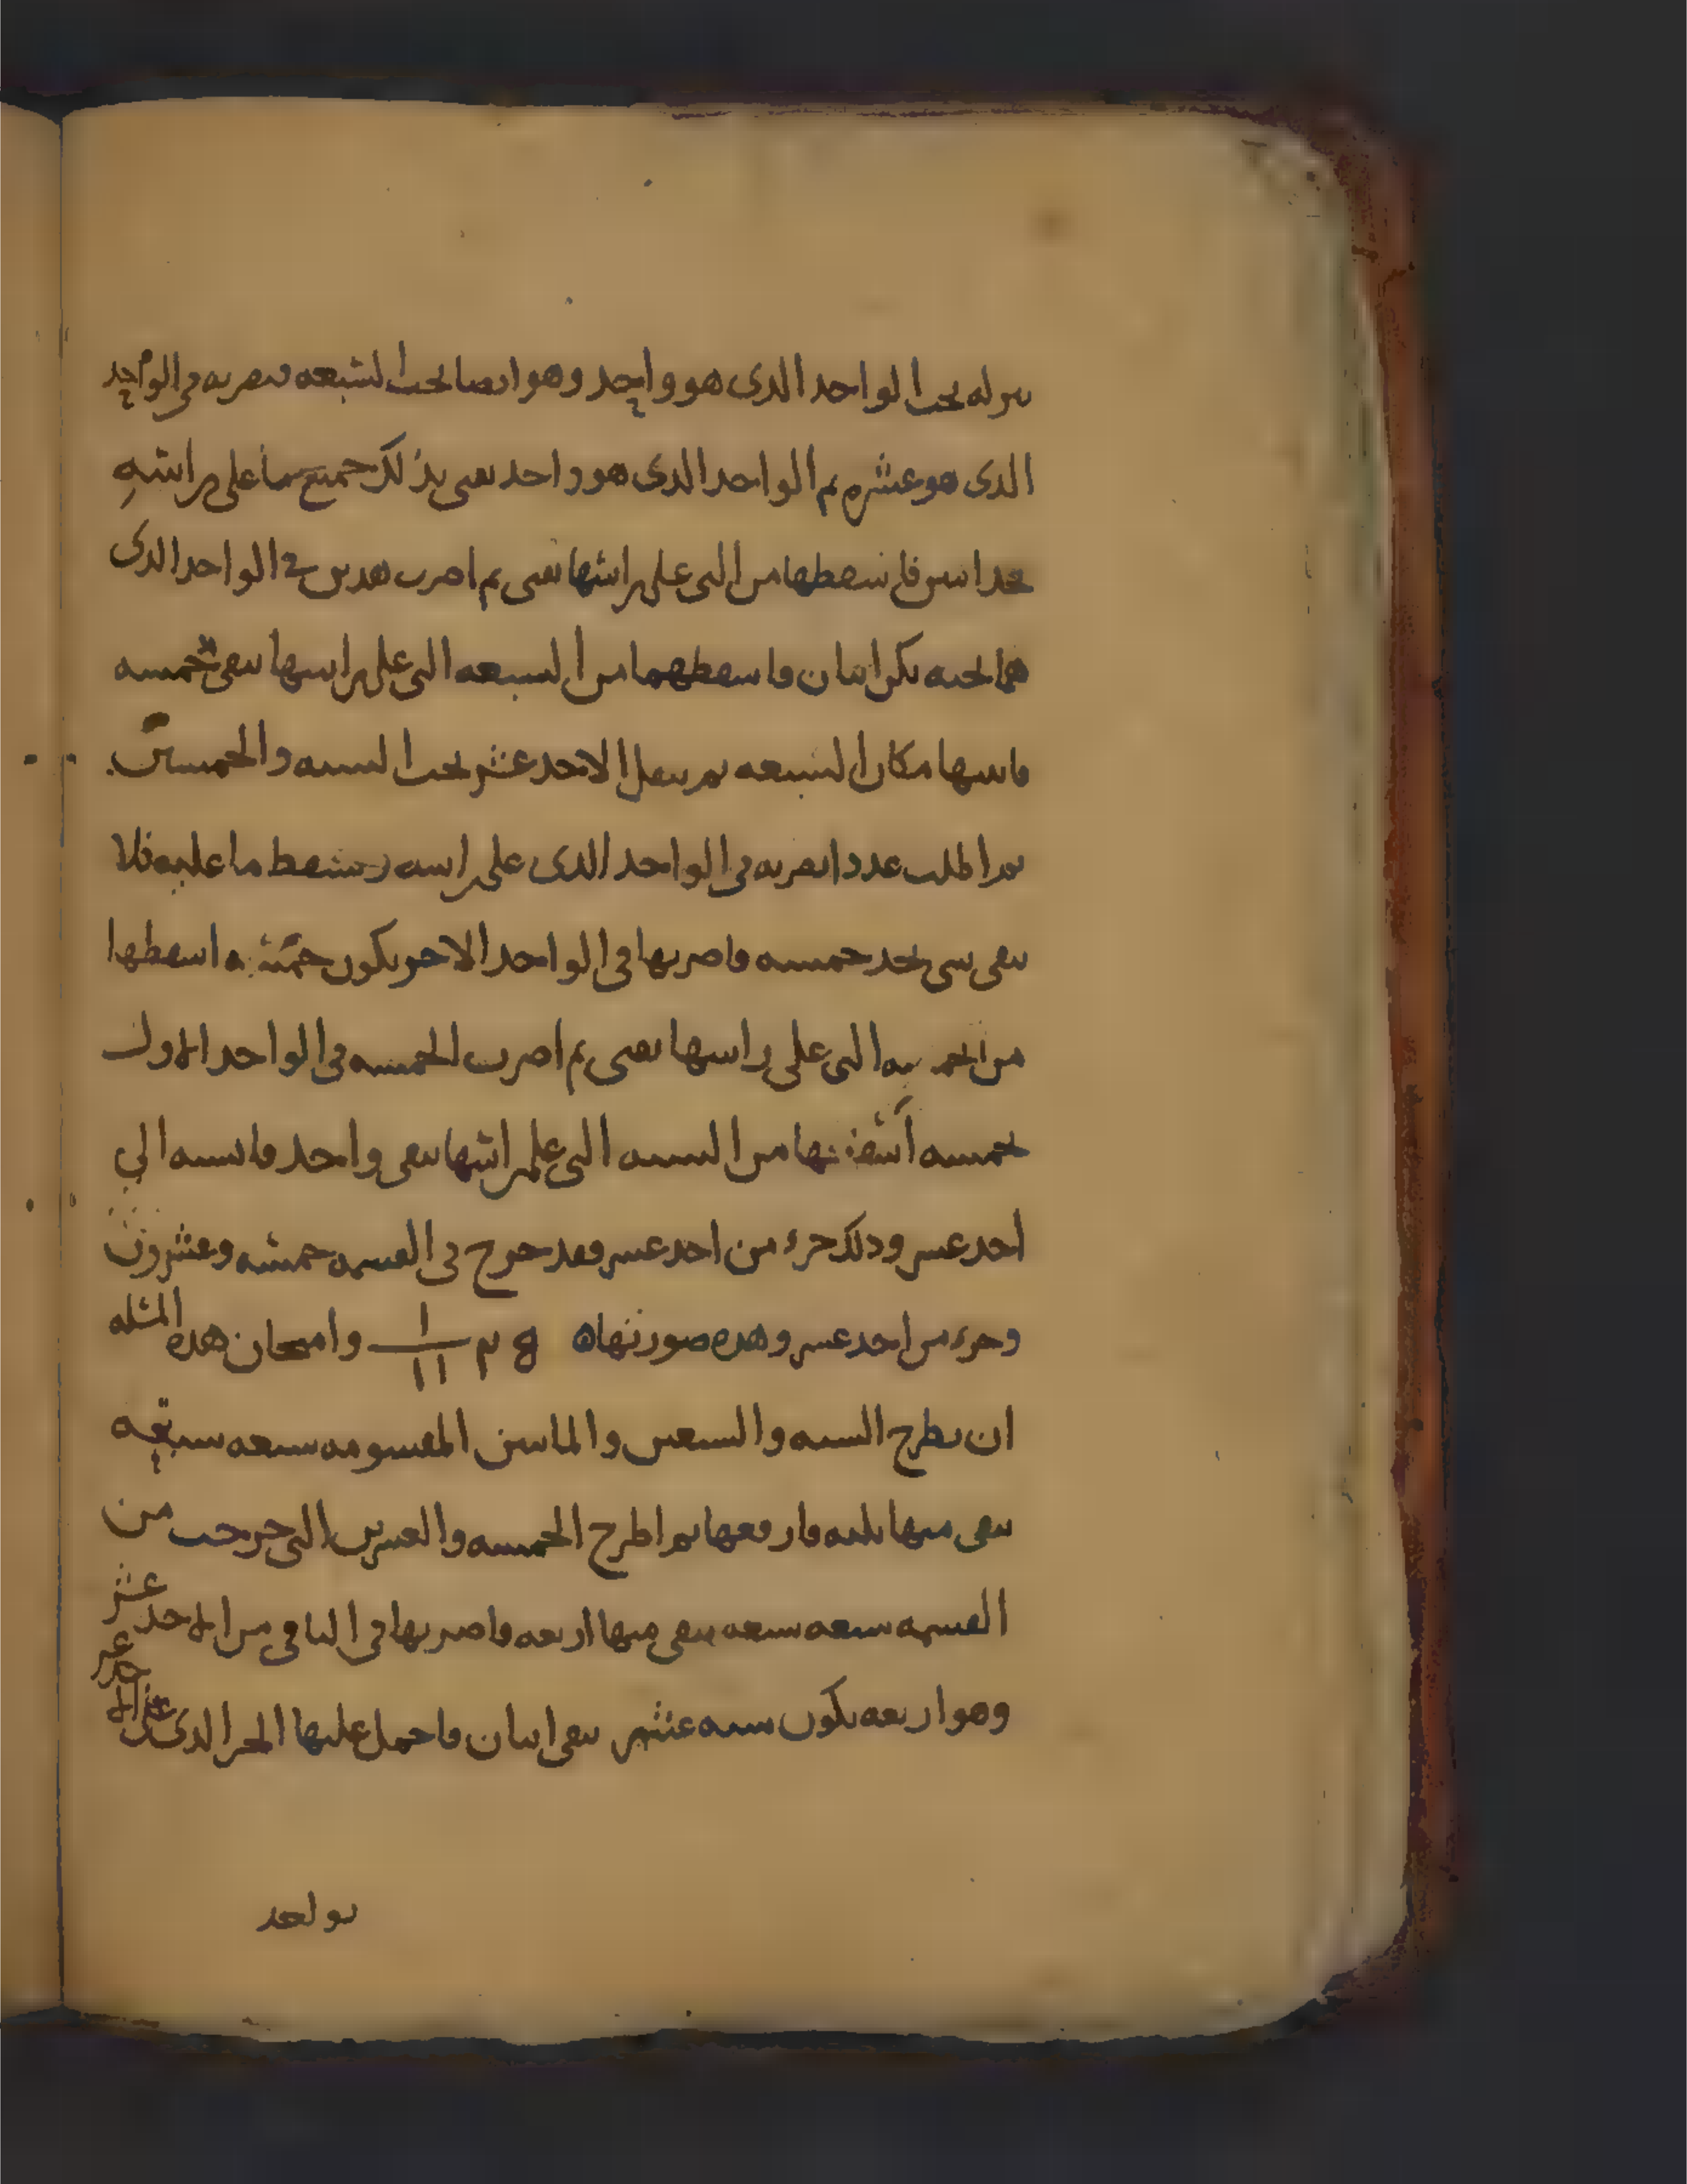 تنزله تحت الواحد الذي هو واحد وهو ايضا تحت السبعه فتضربه في الواحد
الذي هو عشره ثم الواحد الذي هو واحد يفنى بذلك جميع ما على راسه
تجد اثنين فاسقطها من التي على راسها يفنى ثم اضرب هذين في الواحد الذي
هما تحته يكن اثنان فاسقطهما من السبعه التي على راسها يبقى خمسه
فاثبتها مكان السبعه ثم ينقل الاحد عشر تحت السته والخمسين
ثم اطلب عددا تضربه في الواحد الذي على راسه وتسقط ما عليه فلا
يبقى شي تجد خمسه فاضربها في الواحد الاخر يكون خمسه اسقطها
من الخمسه التي على راسها يفنى ثم اضرب الخمسه في الواحد الاول
خمسه اسقطها من السته التي على راسها يبقى واحد فانسبه الي
احد عشر وذلك جزء من احد عشر فقد خرج في القسمه خمسه وعشرون
وجزء من احد عشر وهذه صورتها ه ١/١١ وامتحان هذه المسله
ان تطرح السته والسبعين والماتين المقسومه سبعه سبعه
يبقى منها ثلثه فارفعها ثم اطرح الخمسه والعشرين التي خرجت من
القسمه سبعه سبعه يبقى منها اربعه فاضربها في الباقي من الاحد عشر
وهو اربعه يكون سته عشر يبقى اثنان فاحمل عليها الجزء الذي من احد عشر
بواحد